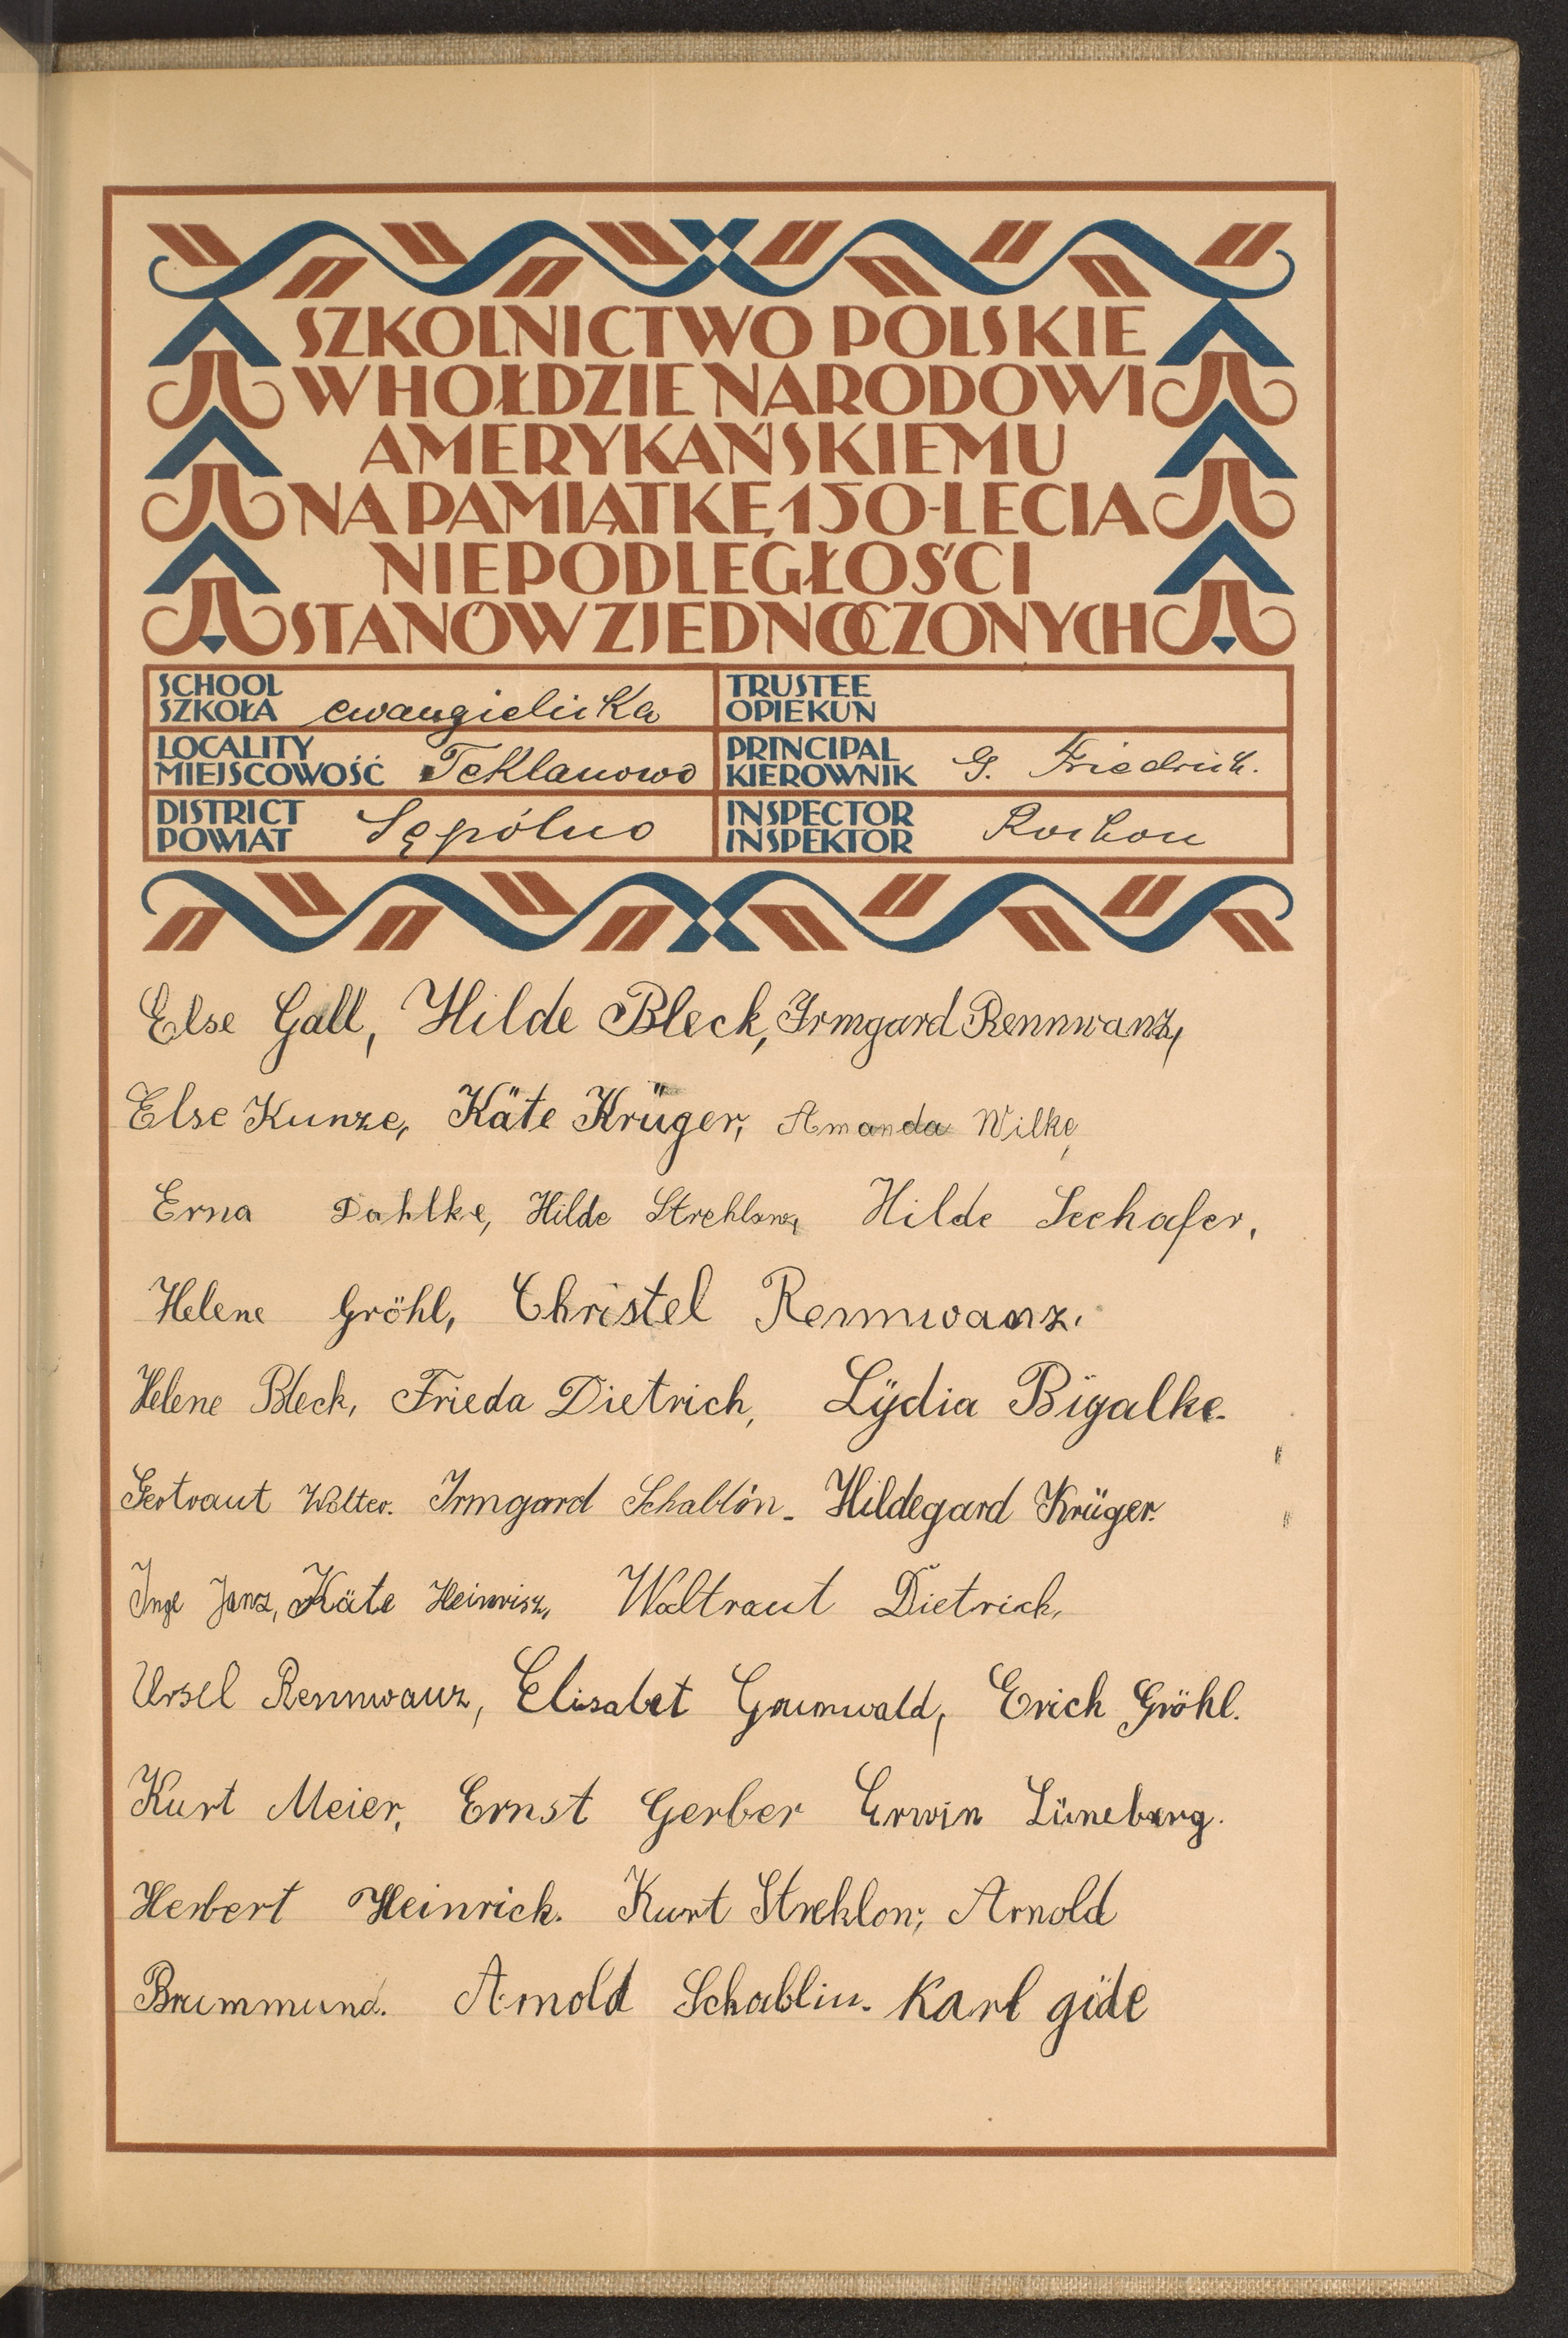 SZKOLNICTWO POLSKIE
W HOŁDZIE NARODOWI
AMERYKAŃSKIEMU
NA PAMIĄTKĘ 150-LECIA
NIEPODLEGŁOŚCI
STANÓW ZJEDNOCZONYCH
SCHOOL
SZKOŁA ewangielicka
TRUSTEE
OPIEKUN
LOCALITY
MIEJSCOWOŚĆ Teklanowo
PRINCIPAL
KIEROWNIK G. Friedrich.
DISTRICT
POWIAT Sępólno
INSPECTOR
INSPEKTOR Rochon
Else Gall, Hilde Bleck, Irmgard Rennwanz,
Else Kunze, Käte Krüger, Amanda Wilke,
Erna Dahlke, Hilde Strehlow, Hilde Seehafer,
Helene Gröhl, Christel Rennwanz.
Helene Bleck, Frieda Dietrich, Lÿdia Bigalke.
Gertraut Wolter. Irmgard Schablin. Hildegard Krüger.
Inge Janz, Käte Waltraut Dietrich,
Ursel Rennwanz, Elisabet Grunwald, Erich Gröhl.
Kurt Meier, Ernst Gerber Erwin Lüneburg.
Herbert Heinrich. Kurt Strehlow, Arnold
Brummund. Arnold Schablin. Karl gide